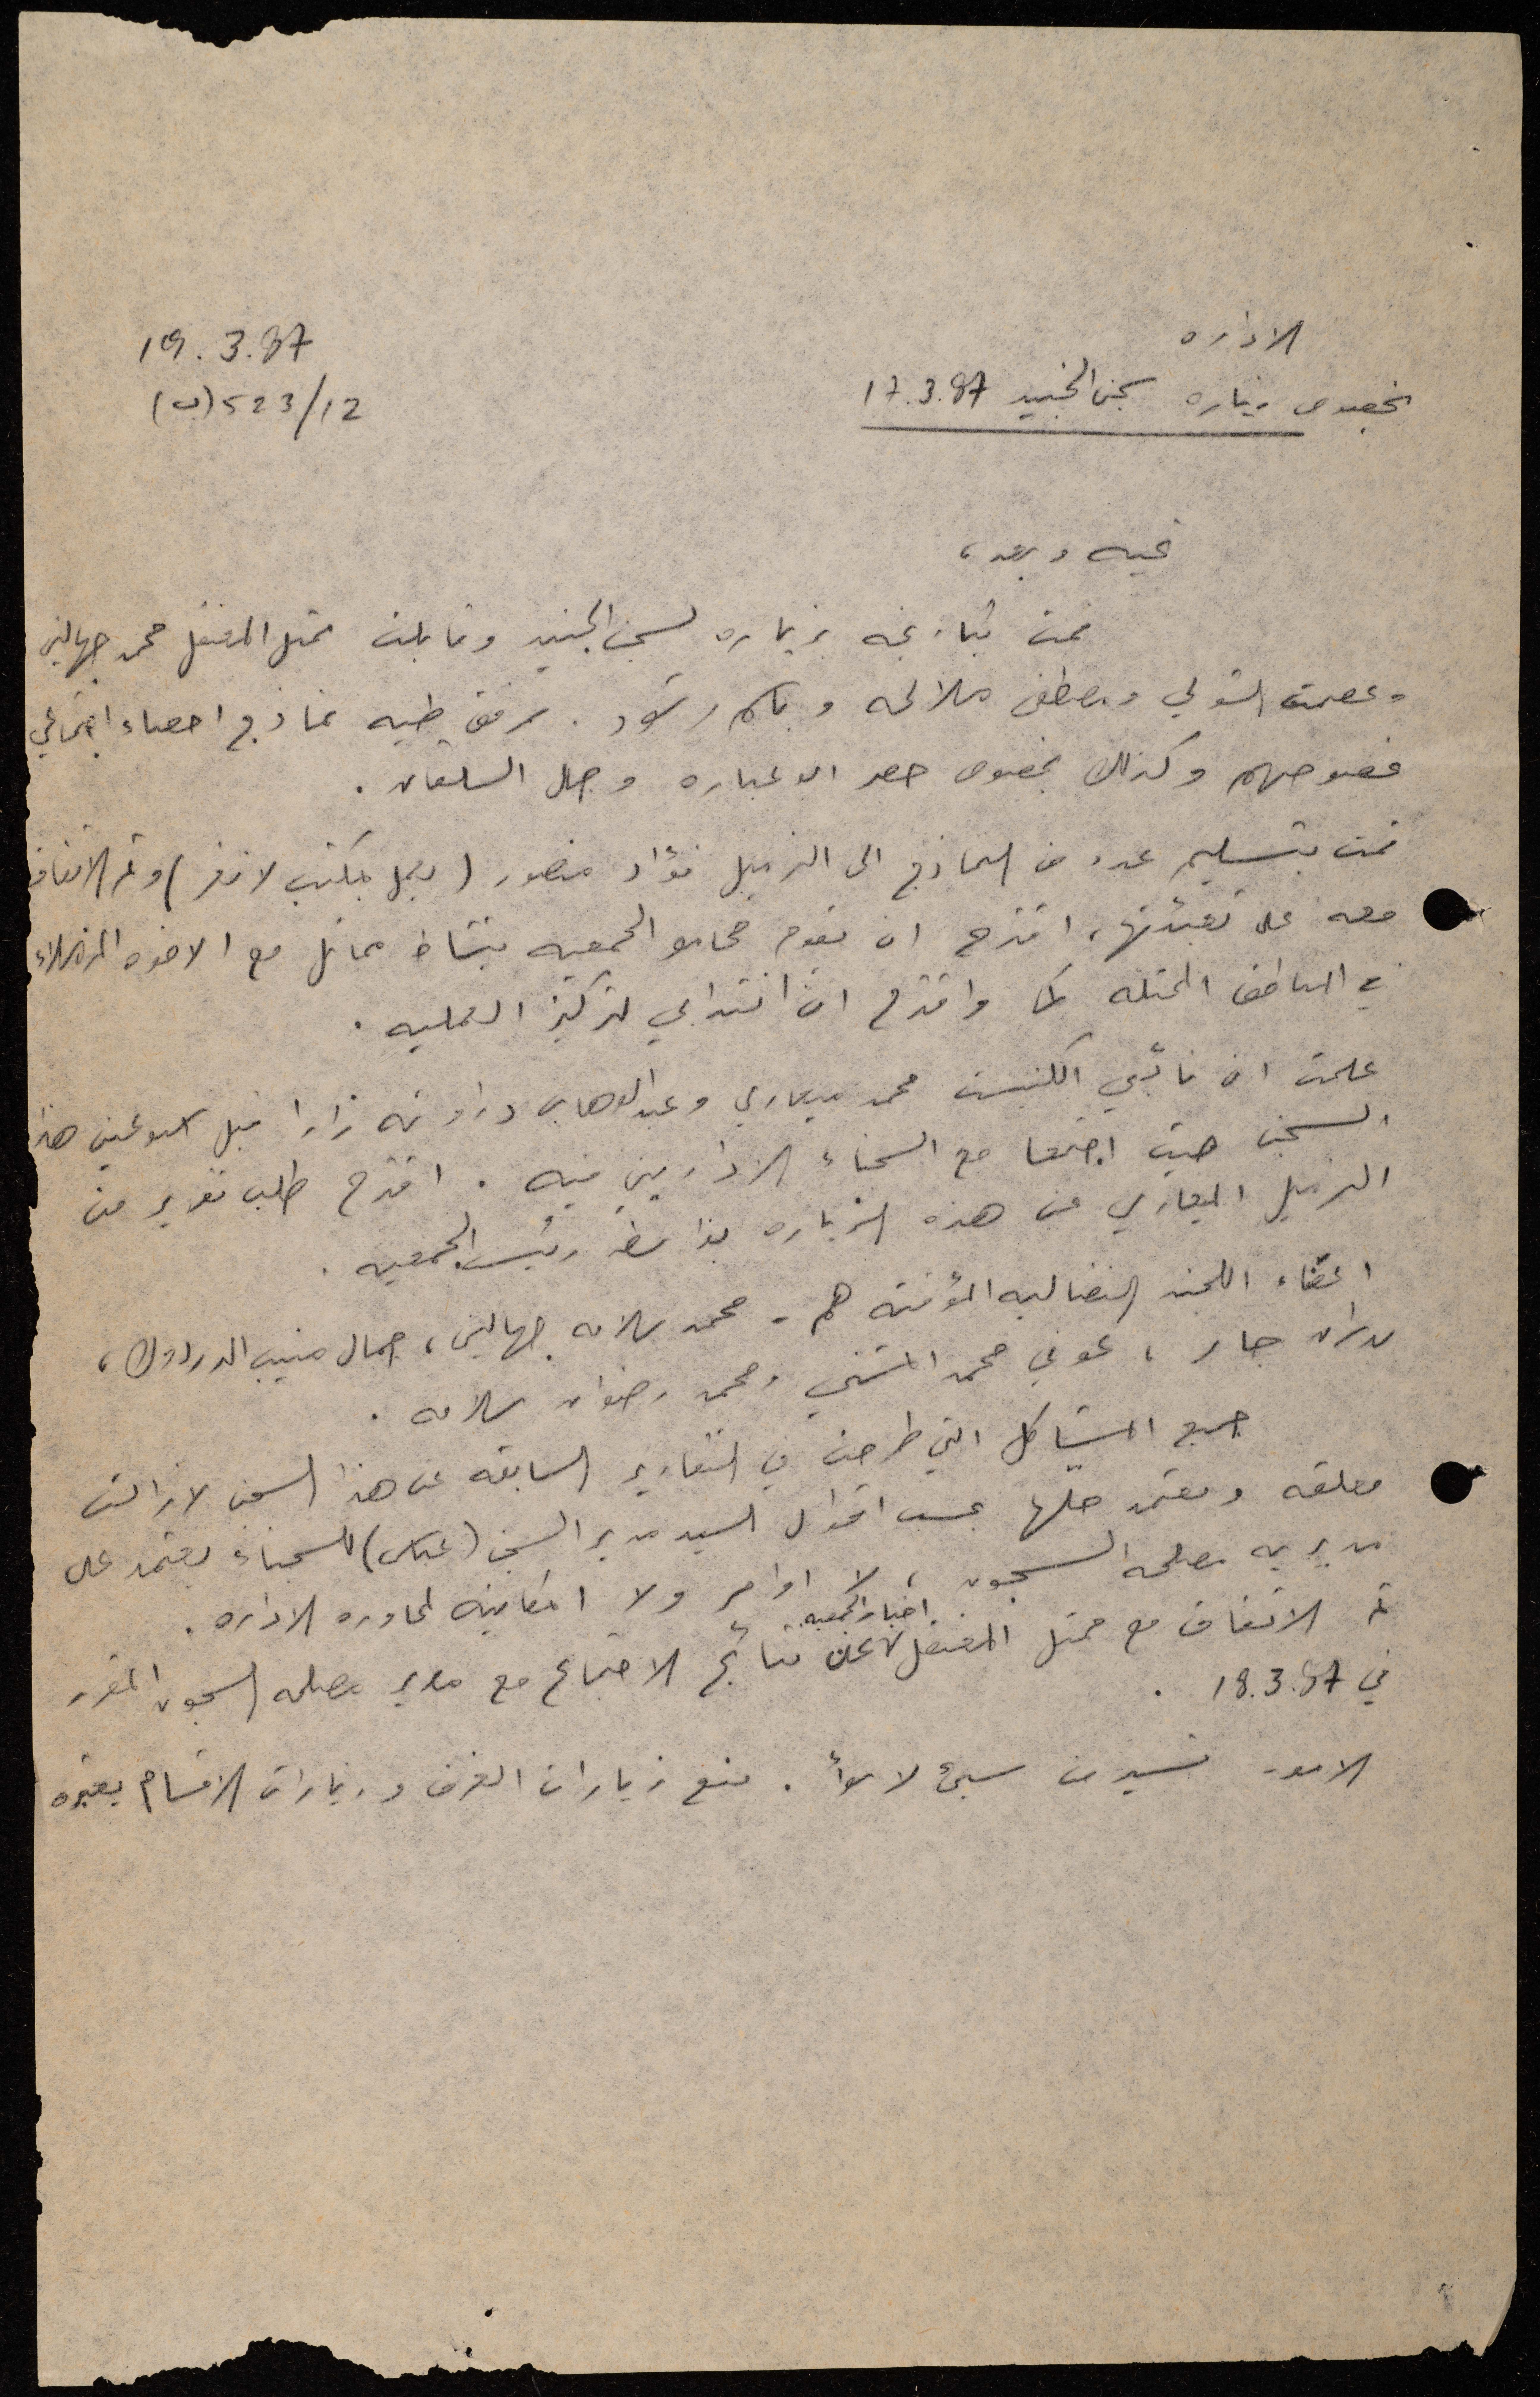 الاداره
19.3.87
بخصوص زياره سجن الجنيد 17.3.87
523/12(ب)
تحيه وبعد،
قمت بتاريخه بزياره لسجن الجنيد وقابلت ممثل المعتقل محمد جهالين
وعصمت الشولي ومصطفى ملالحه و باسم رشود. مرفق طيه نماذج احصاء اجتماعي
بخصوصهم وكذلك بخصوص خضر ابو عباره و جمال السلقان.
قمت بتسليم عدد من النماذج الى الزميل فؤاد منصور (يعمل بمكتب لانغر) وتم الاتفاق
معه على تعبئتها، اقترح ان يقوم محامو الجمعيه بنشاط مماثل مع الاخوه الزملاء
في المناطق المحتله كما واقترح انتدابي لتركيز العمليه.
علمت ان نائبي الكنيست محمد ميعاري وعبد الوهاب دراوشه زارا قبل اسبوعين هذا
السجن حيث اجتمعا مع السجناء الاداريين فيه. اقترح طلب تقرير من
الزميل الميعاري عن هذه الزياره بواسطة رئيس الجمعيه.
اعضاء اللجنه النضاليه المؤقته هم - محمد سلامه جهالين، جمال منيب الدردوك،
بدران جابر، عوني محمد المشني ومحمد رضوان سلامه.
جميع المشاكل التي طرحت في التقارير السابقه عن هذا السجن لا زالت
معلقه ويعتمد حلها بحسب اقوال السيد مدير السجن (عباس) للسجناء يعتمد على
مديريه مصلحه السجون، لا اوامر ولا امكانية لمحاوره الاداره.
تم الاتفاق مع ممثل المعتقل اخبار الجمعيه عن نتائج الاجتماع مع مدير مصلحه السجون المقرر
في 18.3.87.
الامور تسير من سيئ لاسوأ. منع زيارات الغرف وزيارات الاقسام يعتبره